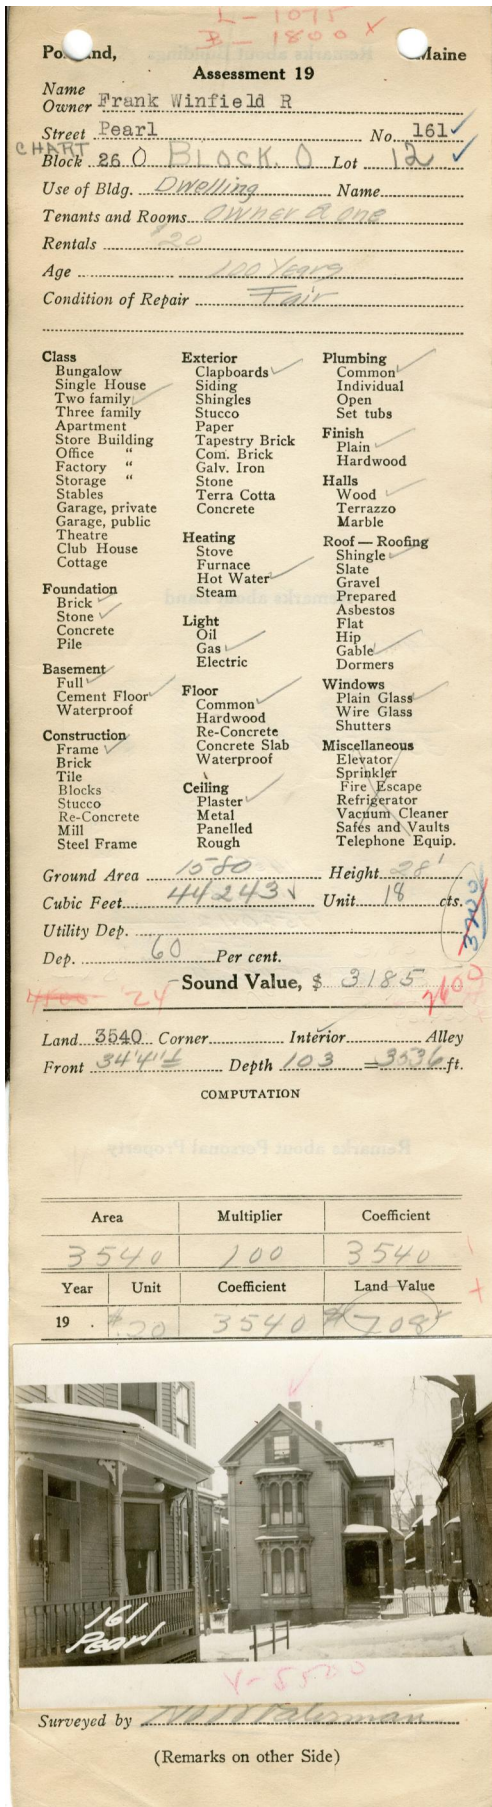 L - 1075
B - 1800 x
Portland, Maine
Assessment 19
Name
Owner Frank Winfield R
Street Pearl No. 161 ✓
CHART
Block 26 O BLOCK. O Lot 12 ✓
Use of Bldg. Dwelling Name
Tenants and Rooms Owner & one
Rentals $20
Age 100 Years
Condition of Repair Fair
Class
Bungalow
Single House
Two family ✓
Three family
Apartment
Store Building
Office "
Factory "
Storage "
Stables
Garage, private
Garage, public
Theatre
Club House
Cottage
Foundation
Brick ✓
Stone ✓
Concrete
Pile
Basement
Full ✓
Cement Floor ✓
Waterproof
Construction
Frame ✓
Brick
Tile
Blocks
Stucco
Re-Concrete
Mill
Steel Frame
Exterior
Clapboards ✓
Siding
Shingles
Stucco
Paper
Tapestry Brick
Com. Brick
Galv. Iron
Stone
Terra Cotta
Concrete
Heating
Stove
Furnace
Hot Water ✓
Steam
Light
Oil
Gas ✓
Electric
Floor
Common ✓
Hardwood
Re-Concrete
Concrete Slab
Waterproof
Ceiling
Plaster ✓
Metal
Panelled
Rough
Plumbing
Common ✓
Individual
Open
Set tubs
Finish
Plain ✓
Hardwood
Halls
Wood ✓
Terrazzo
Marble
Roof — Roofing
Shingle ✓
Slate
Gravel
Prepared
Asbestos
Flat
Hip
Gable ✓
Dormers
Windows
Plain Glass ✓
Wire Glass
Shutters
Miscellaneous
Elevator
Sprinkler
Fire Escape
Refrigerator
Vacuum Cleaner
Safes and Vaults
Telephone Equip.
Ground Area 1580 Height 28'
Cubic Feet 44243 ✓ Unit 18 cts.
3700
Utility Dep.
Dep. 60 Per cent.
Sound Value, $ 3185
4500 - '24 2600
Land 3540 Corner Interior ✓ Alley
Front 34'4"± Depth 103 = 3536 ft.
COMPUTATION
Area Multiplier Coefficient
3540 100 3540
Year Unit Coefficient Land Value
19 . $.20 3540 $708
161
Pearl
V - 5500
Surveyed by
(Remarks on other Side)